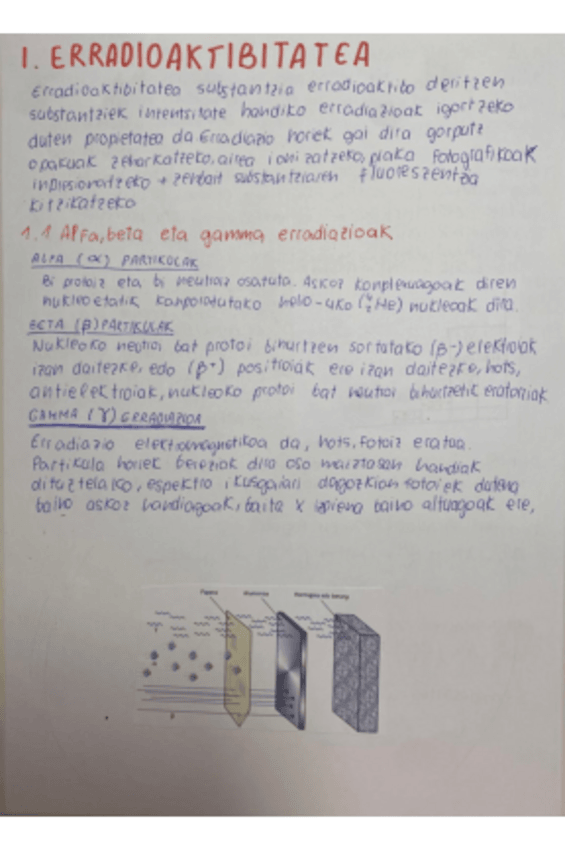 1. ERRADIOAKTIBITATEA
Erradioaktibitatea substantzia erradioaktibo deritzen
substantziek intentsitate handiko erradiazioak igortzeko
duten propietatea da Erradiazio horiek gai dira gorputz
opakuak zeharkatzeko, airea ionizatzeko, plaka fotografikoak
inpresionatzeko + zenbait substantziaren fluoreszentzia
kitzikatzeko
1.1 Alfa, beta eta gamma erradiazioak
ALFA (α) PARTIKULAK
Bi protoiz eta bi neutroiz osatuta. Askoz konplexuagoak diren
nukleoetatik kanporatutako helio-4ko (⁴₂He) nukleoak dira.
BETA (β) PARTIKULAK
Nukleoko neutroi bat protoi bihurtzen sortatako (β-) elektroiak
izan daitezke, edo (β+) positroiak ere izan daitezke, hots,
antielektroiak, nukleoko protoi bat neutroi bihurtzetik eratorriak
GAMMA (γ) ERRADIAZIOA
Erradiazio elektromagnetikoa da, hots, fotoiz eratua.
Partikula horiek bereziak dira oso maiztasun handiak
dituztelako, espektro ikusgaiari dagozkion fotoiek dutena
baino askoz handiagoak, baita X izpiena baino altuagoak ere,
Papera Aluminioa Hormigoia edo beruna